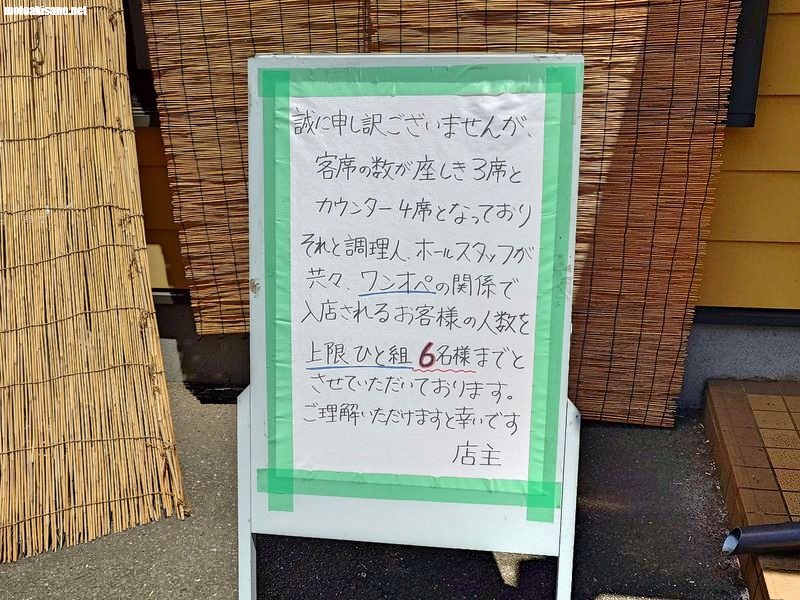 motoakisano.net
誠に申し訳ございませんが、
客席の数が座しき3席と
カウンター4席となっており
それと調理人、ホールスタッフが
共々、ワンオペの関係で
入店されるお客様の人数を
上限ひと組6名様までと
させていただいております。
ご理解いただけますと幸いです
店主